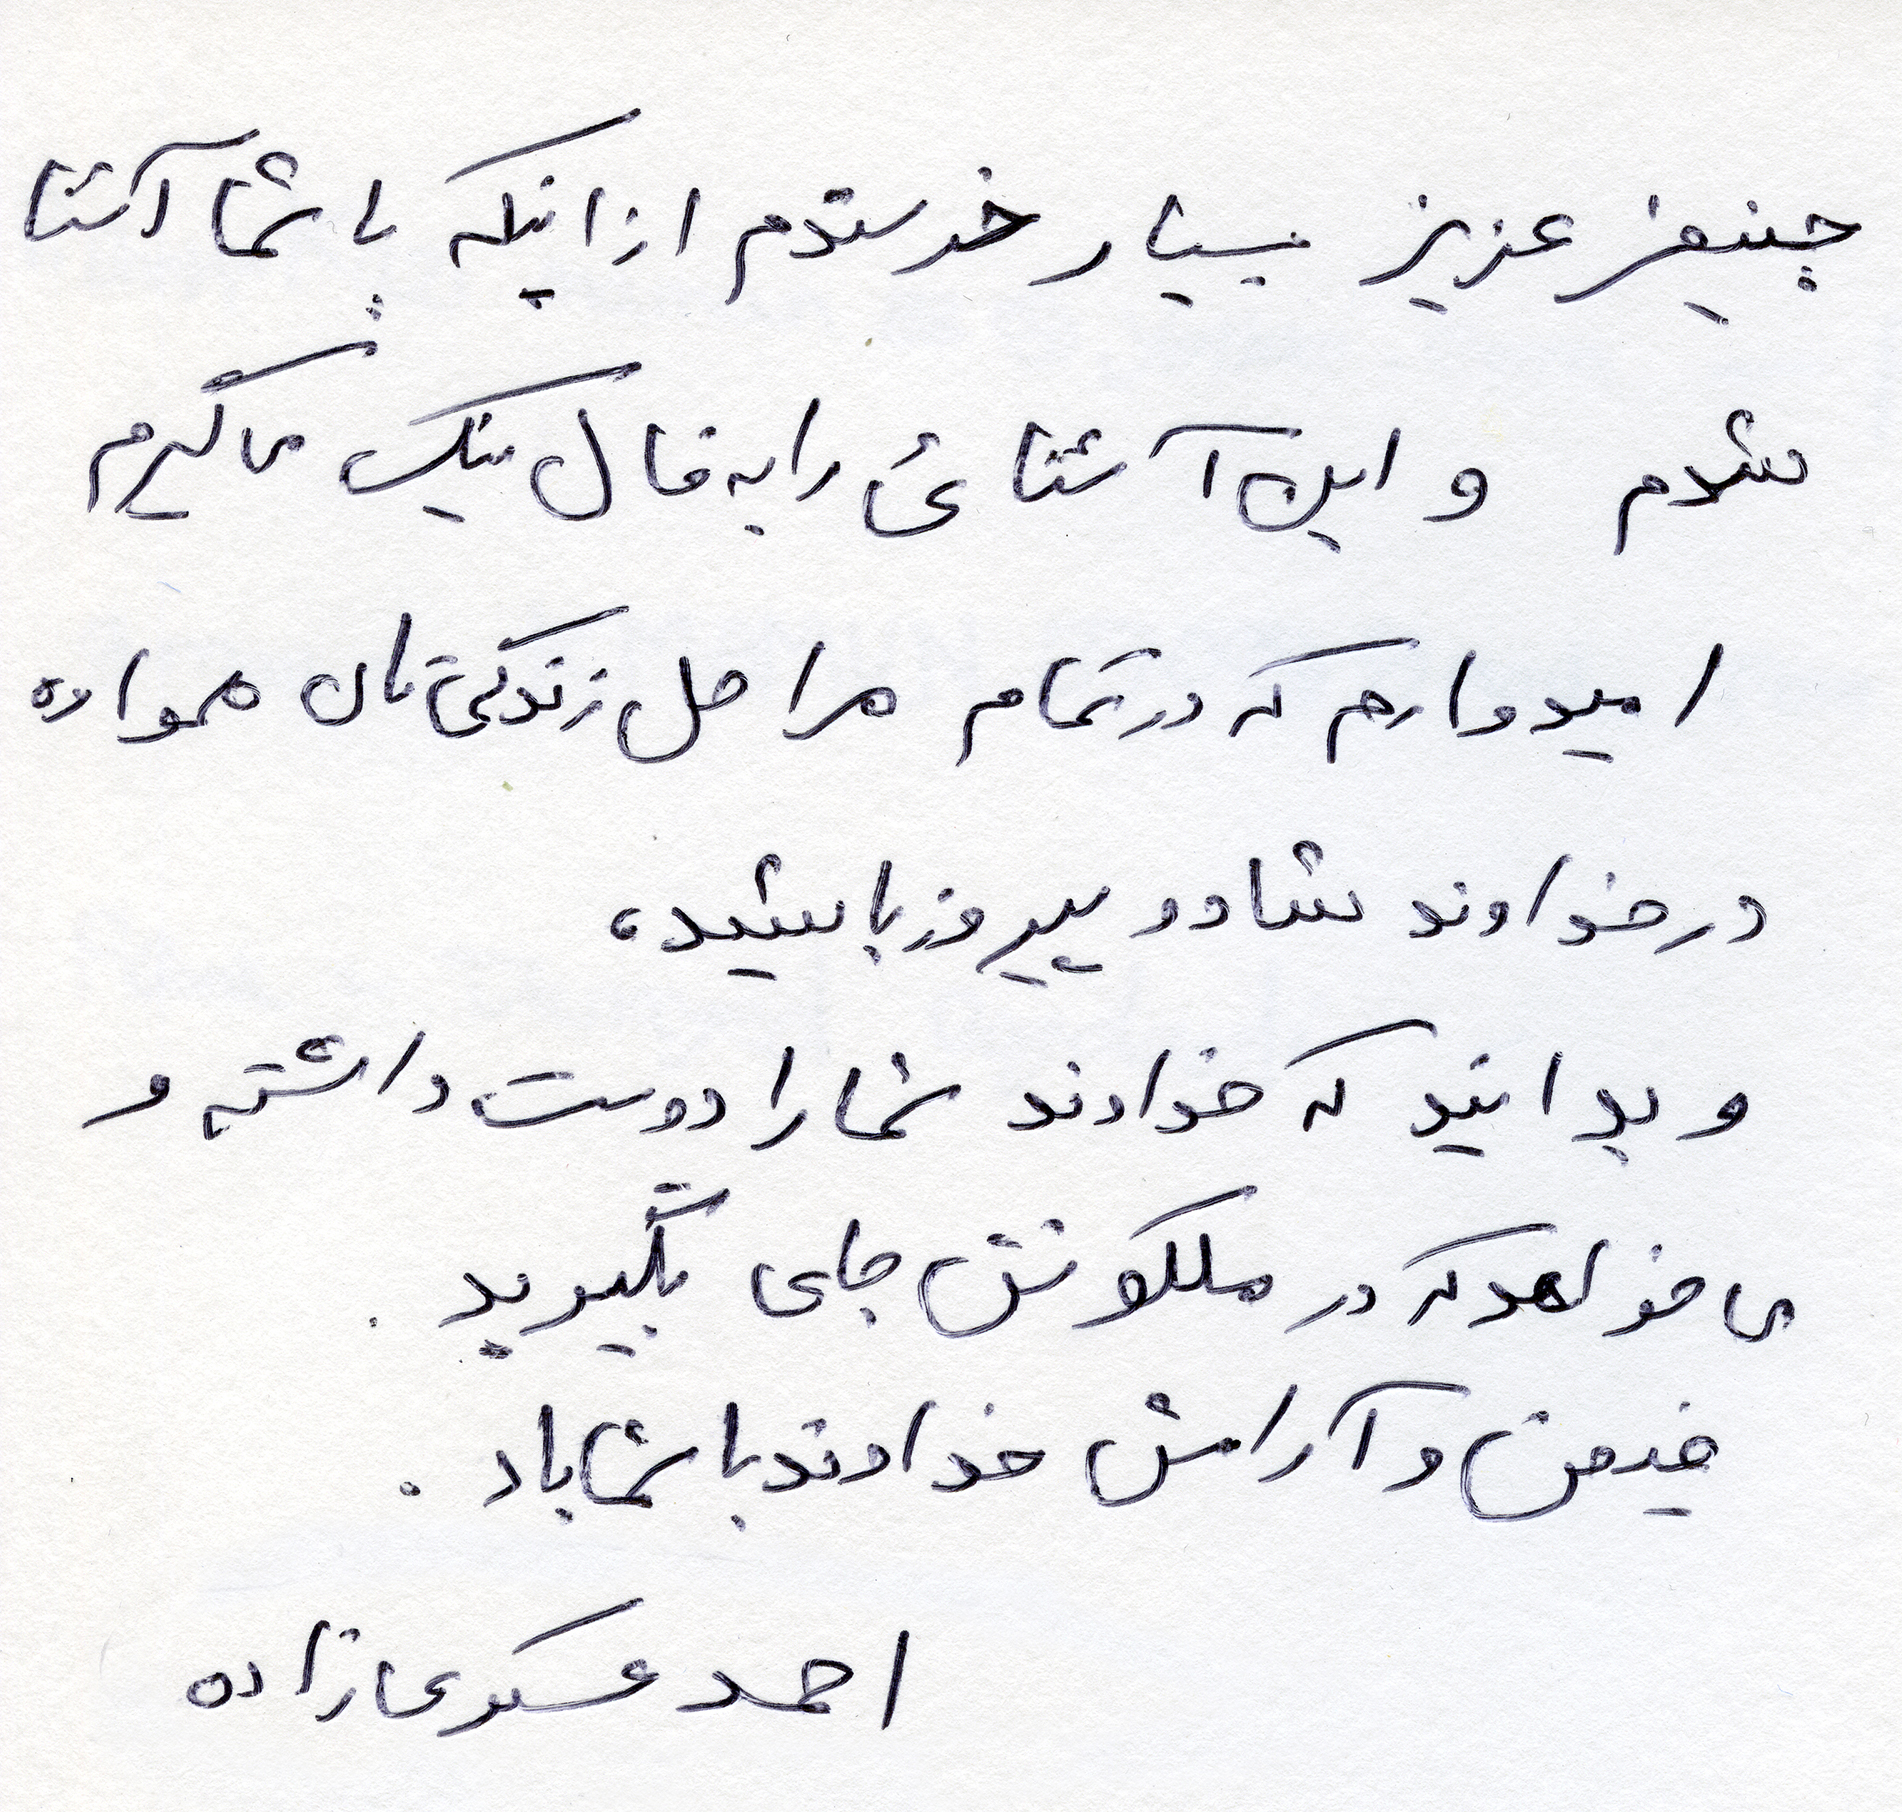 جنیفر عزیز بسیار خرسندم از اینکه با شما آشنا
شدم و این آشنائی را به فال نیک می گیرم
امیدوارم که در تمام مراحل زندگی تان همواره
در خداوند شاد و پیروز باشید،
و بدانید که خداوند شما را دوست داشته و
می خواهد که در ملکوتش جای بگیرید.
فیض و آرامش خداوند با شما باد.
احمد عسکری زاده